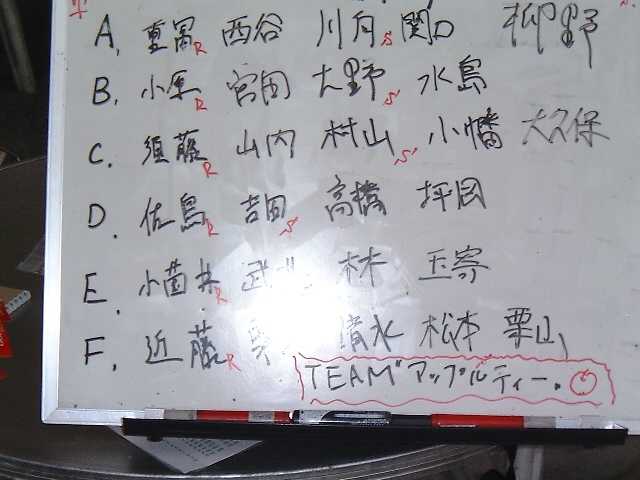 A. 重冨R 西谷 川月S 関口 柳野
B. 小原R 宮田 大野S 水島
C. 須藤R 山内 村山S 小幡 大久保
D. 佐島R 吉田S 高橋 坪田
E. 小茴井R 武 林 玉寄
F. 近藤R 清水 松本 栗山
TEAM "アップルティー.